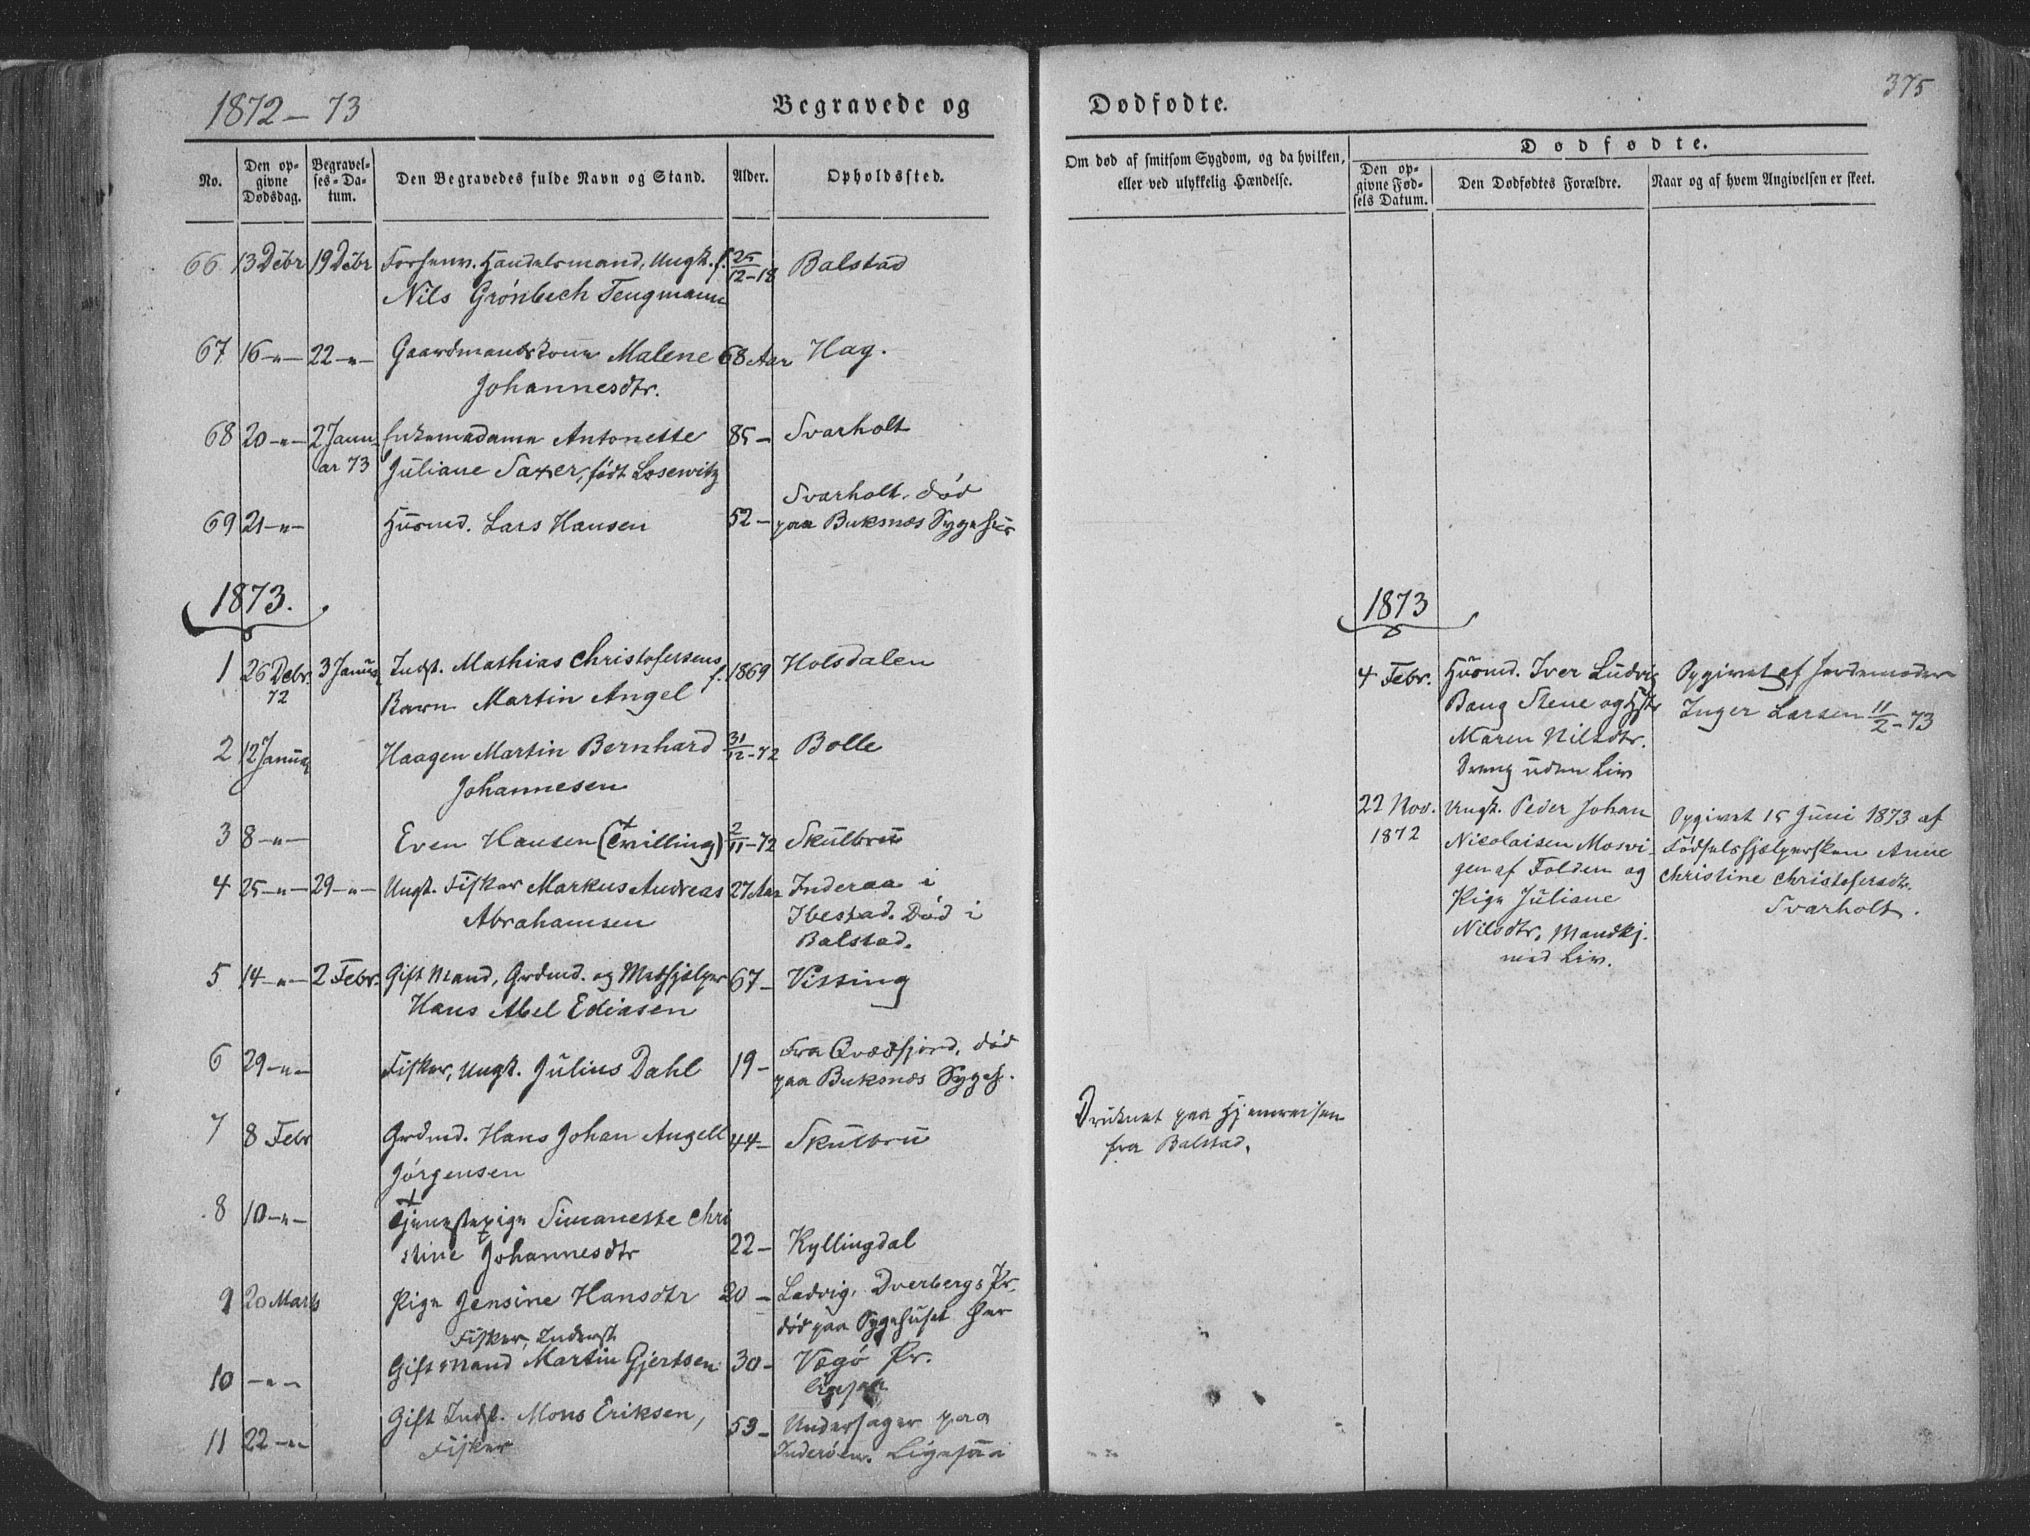 1872 – 73
Begravede og
Dødfødte.
375
No.
Den op-
givne
Dødsdag.
Begravel-
ses-Da-
tum.
Den Begravedes fulde Navn og Stand.
Alder.
Opholdssted.
Om død af smitsom Sygdom, og da hvilken,
eller ved ulykkelig Hændelse.
Dødfødte.
Den op-
givne Fød-
sels Datum.
Den Dødfødtes Forældre.
Naar og af hvem Angivelsen er skeet.
66 13 Debr 19 Debr Forhenv. Handelsmand, Ungk. f. 25/12-18 Balstad
Nils Grønbech Tengmann
67 16 -"- 22 -"- Gaardmandskone Malene 68 Aar Hag.
Johannesdtr.
68 20 -"- 2 Janu Enkemadame Antonette 85 - Svarholt
ar 73 Juliane Saxer, født Losewitz
Svarholt. død
69 21 -"- Husmd. Lars Hansen 52 - paa Buksnæs Sygehus
1873.
1 26 Debr. 3 Januar Indst. Mathias Christofersens f. 1869 Holsdalen
72 Barn Martin Angel
2 12 Januar Haagen Martin Bernhard 31/12-72 Bolle
Johannesen
3 8 -"- Even Hansen (Tvilling) 2/11-72 Skulbru
4 25 -"- 29 -"- Ungk. Fisker Markus Andreas 27 Aar Inderaa i
Abrahamsen Ibestad. Død i
Balstad.
5 14 -"- 2 Febr. Gift Mand, Grdmd. og Medhjelper 67 - Vissing
Hans Abel Ediasen
6 29 -"- Fisker, Ungk. Julius Dahl 19 - Fra Qvædfjord, død
paa Buksnæs Sygeh.
7 8 Febr Grdmd. Hans Johan Angell 44 - Skulbru
Jørgensen
Druknet paa Hjemreisen
fra Balstad.
8 10 -"- Tjenestepige Simanette Chri
stine Johannesdtr 22 - Kyllingdal
9 20 Marts Pige Jensine Hansdtr 20 - Ladvig, Dverbergs Pr.
død paa Sygehuset her
Fisker, Inderst
10 -"- Gift Mand Martin Gjertsen 30 - Vægø Pr.
Ligesaa
11 22 -"- Gift Indst. Mons Eriksen, 53 - Undersager paa
Fisker Inderøen. Ligesaa
1873
4 Febr. Husmd. Iver Ludvig Opgivet af Jordemoder
Bang Stene og Hstr Inger Larsen 11/2-73
Maren Nilsdtr.
Dreng uden Liv
22 Nov. Ungk. Peder Johan Opgivet 15 Juni 1873 af
1872 Nicolaisen Mosvi- Fødselshjælpersken Anne
gen af Folden og Christine Christofersdtr.
Pige Juliane Svarholt.
Nilsdtr. Mandkj.
med Liv.